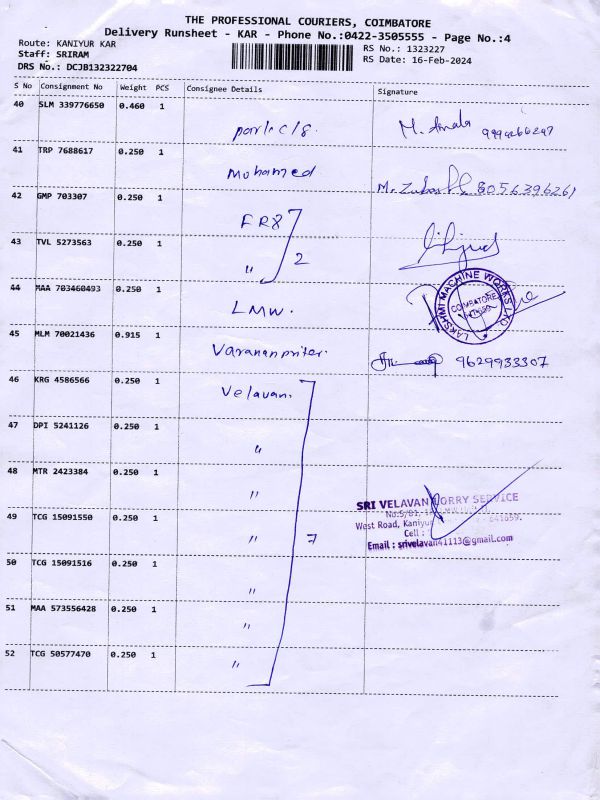 THE PROFESSIONAL COURIERS, COIMBATORE
Delivery Runsheet - KAR - Phone No.:0422-3505555 - Page No.:4
Route: KANIYUR KAR
RS No.: 1323227
Staff: SRIRAM
RS Date: 16-Feb-2024
DRS No.: DCJB132322704
S No Consignment No Weight PCS Consignee Details Signature
40 SLM 339776650 0.460 1
M. Amala
41 TRP 7688617 0.250 1 Mohamed
8056396261
42 GMP 703307 0.250 1 FR8
43 TVL 5273563 0.250 1 " 2
44 MAA 703460493 0.250 1 LMW.
LAKSHMI MACHINE WORKS LTD
COIMBATORE
45 MLM 70021436 0.915 1
9629933307
46 KRG 4586566 0.250 1 Velavan.
47 DPI 5241126 0.250 1 "
48 MTR 2423384 0.250 1 "
SRI VELAVAN LORRY SERVICE
49 TCG 15091550 0.250 1 " 7
West Road, Kaniyur
Cell :
Email : srivelavan41113@gmail.com
50 TCG 15091516 0.250 1 "
51 MAA 573556428 0.250 1 "
52 TCG 50577470 0.250 1 "